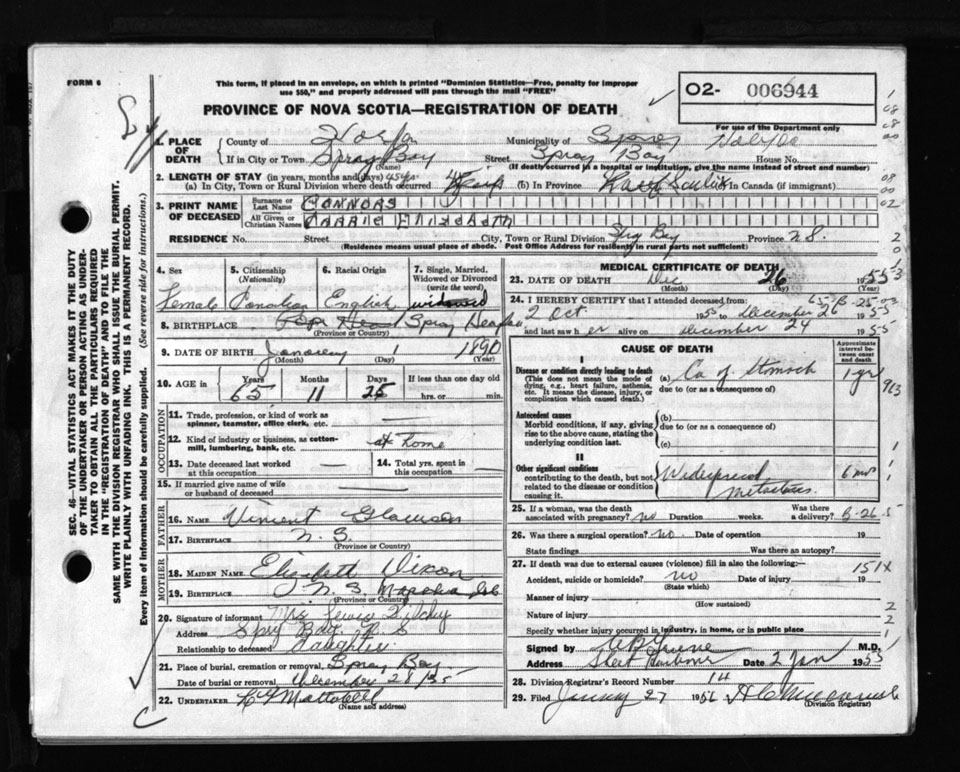 FORM 6
This form, if placed in an envelope, on which is printed "Dominion Statistics—Free, penalty for improper
use $50," and properly addressed will pass through the mail "FREE"
PROVINCE OF NOVA SCOTIA—REGISTRATION OF DEATH
O2- 006944
For use of the Department only
1. PLACE OF DEATH
County of Municipality of
If in City or Town Spray Bay (Name) Street Spray Bay House No.
(If death occurred in a hospital or institution, give the name instead of street and number)
2. LENGTH OF STAY (in years, months and days) 45 yrs
(a) In City, Town or Rural Division where death occurred 45 years (b) In Province In Canada (if immigrant)
3. PRINT NAME OF DECEASED
Surname or Last Name CONNORS
All Given or Christian Names CARRIE ELIZABETH
RESIDENCE No. Street City, Town or Rural Division Spry Bay Province N.S.
(Residence means usual place of abode. Post Office Address for residents in rural parts not sufficient)
4. Sex Female
5. Citizenship (Nationality) Canadian
6. Racial Origin English
7. Single, Married, Widowed or Divorced (write the word) widowed
8. BIRTHPLACE Spray Hfx
(Province or Country)
9. DATE OF BIRTH January 1 1890
(Month) (Day) (Year)
10. AGE in Years 65 Months 11 Days 25 If less than one day old hrs. or min.
OCCUPATION
11. Trade, profession, or kind of work as spinner, teamster, office clerk, etc. —
12. Kind of industry or business, as cotton-mill, lumbering, bank, etc. at home
13. Date deceased last worked at this occupation —
14. Total yrs. spent in this occupation —
15. If married give name of wife or husband of deceased —
FATHER
16. NAME Vincent
17. BIRTHPLACE N. S.
(Province or Country)
MOTHER
18. MAIDEN NAME Elizabeth Dixon
19. BIRTHPLACE N. S.
(Province or Country)
20. Signature of informant Mrs Lewis
Address Spry Bay N. S
Relationship to deceased daughter
21. Place of burial, cremation or removal Spray Bay
Date of burial or removal December 28/55
22. UNDERTAKER
(Name and address)
MEDICAL CERTIFICATE OF DEATH
23. DATE OF DEATH Dec 26 1955
(Month) (Day)
24. I HEREBY CERTIFY that I attended deceased from
2 Oct 1955 to December 26 1955
and last saw h er alive on december 24 1955
CAUSE OF DEATH
Approximate interval between onset and death
I
Disease or condition directly leading to death
(This does not mean the mode of dying, e.g., heart failure, asthenia, etc. It means the disease, injury, or complication which caused death.)
(a) Ca of Stomach 1 yr
due to (or as a consequence of)
Antecedent causes
Morbid conditions, if any, giving rise to the above cause, stating the underlying condition last.
(b)
due to (or as a consequence of)
(c)
II
Other significant conditions
contributing to the death, but not related to the disease or condition causing it.
Widespread metastases 6 mos
25. If a woman, was the death associated with pregnancy? no Duration weeks. Was there a delivery?
26. Was there a surgical operation? no. Date of operation 19
State findings Was there an autopsy?
27. If death was due to external causes (violence) fill in also the following:
Accident, suicide or homicide? no Date of injury 19
(State which)
Manner of injury
(How sustained)
Nature of injury
Specify whether injury occurred in industry, in home, or in public place
Signed by M.D.
Address Sheet Harbour Date 2 Jan 1955
28. Division Registrar's Record Number 14
29. Filed January 27 1956
(Division Registrar)
SEC. 46—VITAL STATISTICS ACT MAKES IT THE DUTY
OF THE UNDERTAKER OR PERSON ACTING AS UNDER-
TAKER TO OBTAIN ALL THE PARTICULARS REQUIRED
IN THE "REGISTRATION OF DEATH" AND TO FILE THE
SAME WITH THE DIVISION REGISTRAR WHO SHALL ISSUE THE BURIAL PERMIT.
WRITE PLAINLY WITH UNFADING INK. THIS IS A PERMANENT RECORD.
Every item of information should be carefully supplied. (See reverse side for instructions.)